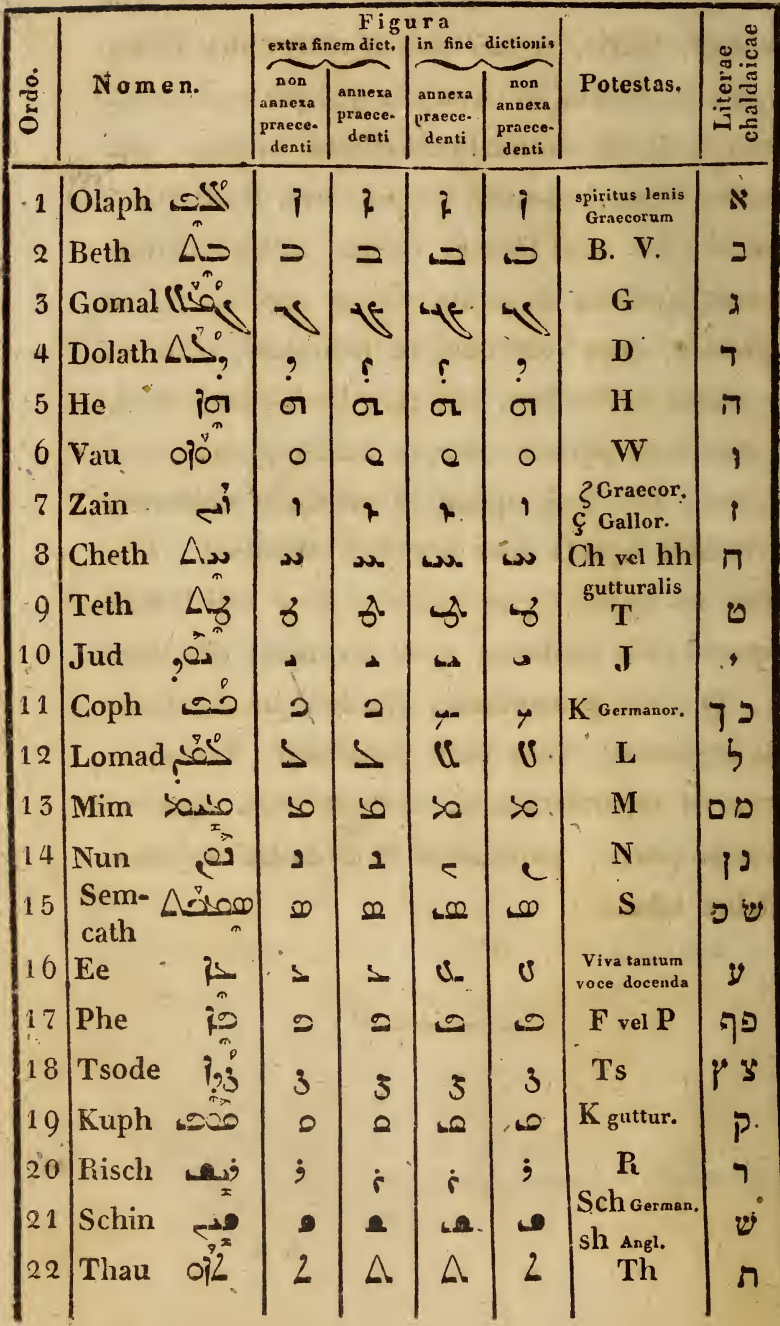 Figura
extra finem dict. in fine dictionis
Ordo. Nomen. non annexa praecedenti annexa praecedenti annexa praecedenti non annexa praecedenti Potestas. Literae chaldaicae
1 Olaph ܐܠܦ ܐ ܐ ܐ ܐ spiritus lenis Graecorum א
2 Beth ܒܬ ܒ ܒ ܒ ܒ B. V. ב
3 Gomal ܓܡܠ ܓ ܓ ܓ ܓ G ג
4 Dolath ܕܠܬ ܕ ܕ ܕ ܕ D ד
5 He ܗܐ ܗ ܗ ܗ ܗ H ה
6 Vau ܘܐܘ ܘ ܘ ܘ ܘ W ו
7 Zain ܙܝܢ ܙ ܙ ܙ ܙ ζ Graecor. ç Gallor. ז
8 Cheth ܚܬ ܚ ܚ ܚ ܚ Ch vel hh gutturalis ח
9 Teth ܛܬ ܛ ܛ ܛ ܛ T ט
10 Jud ܝܘܕ ܝ ܝ ܝ ܝ J י
11 Coph ܟܦ ܟ ܟ ܟ ܟ K Germanor. כ ך
12 Lomad ܠܡܕ ܠ ܠ ܠ ܠ L ל
13 Mim ܡܝܡ ܡ ܡ ܡ ܡ M מ ם
14 Nun ܢܘܢ ܢ ܢ ܢ ܢ N נ ן
15 Sem-
cath ܣܡܟܬ ܣ ܣ ܣ ܣ S שׂ פ
16 Ee ܥܐ ܥ ܥ ܥ ܥ Viva tantum voce docenda ע
17 Phe ܦܐ ܦ ܦ ܦ ܦ F vel P פ ף
18 Tsode ܨܕܐ ܨ ܨ ܨ ܨ Ts צ ץ
19 Kuph ܩܘܦ ܩ ܩ ܩ ܩ K guttur. ק
20 Risch ܪܝܫ ܪ ܪ ܪ ܪ R ר
21 Schin ܫܝܢ ܫ ܫ ܫ ܫ Sch German. sh Angl. שׁ
22 Thau ܬܐܘ ܬ ܬ ܬ ܬ Th ת